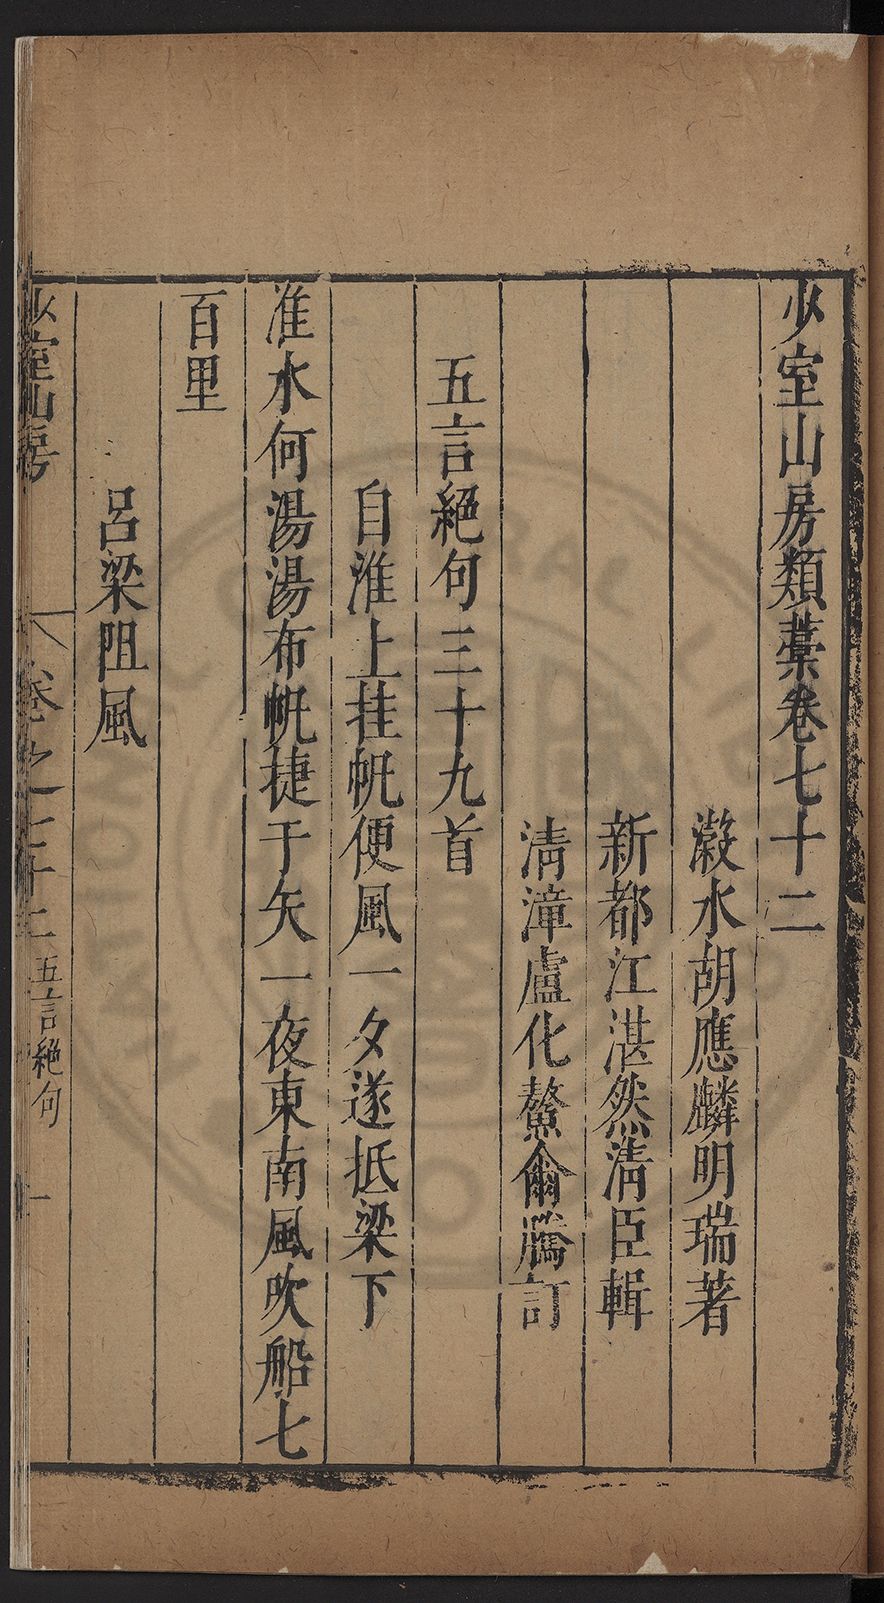 少室山房類藁卷七十二
瀫水胡應麟明瑞著
新都江湛然淸臣輯
淸漳盧化鰲爾騰訂
五言絕句三十九首
自淮上挂帆便風一夕遂抵梁下
淮水何湯湯布帆捷于矢一夜東南風吹船七
百里
呂梁阻風
少室山房
卷之七十二
五言絕句
一